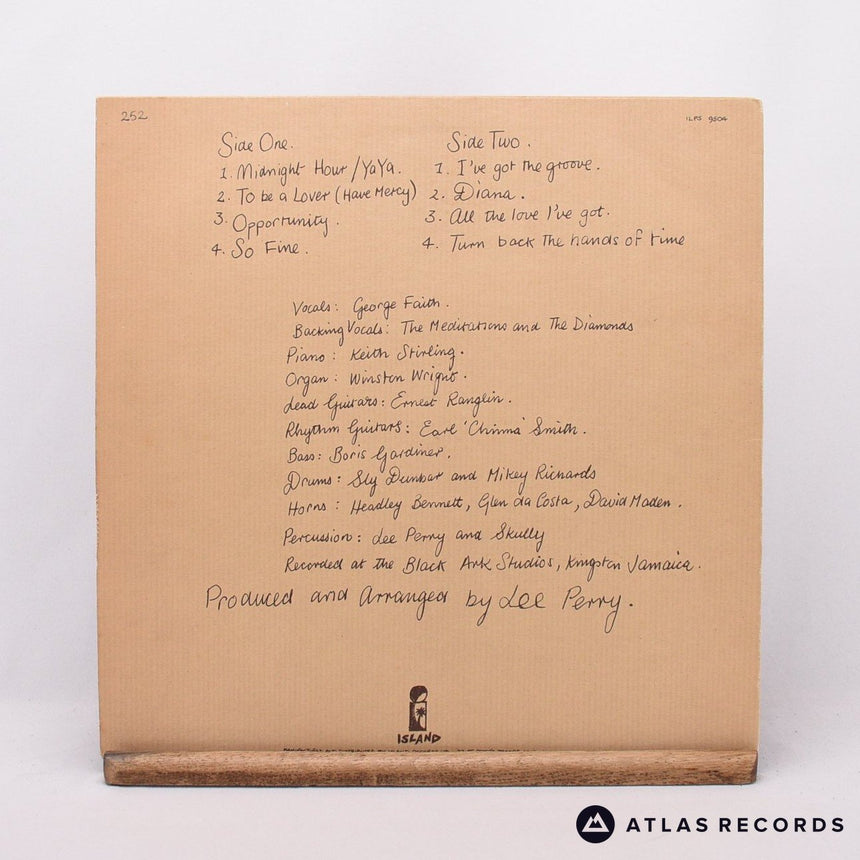 252
ILPS 9504
Side One.
1. Midnight Hour / YaYa.
2. To be a Lover (Have Mercy)
3. Opportunity.
4. So Fine.
Side Two.
1. I've got the groove.
2. Diana.
3. All the love I've got.
4. Turn back the hands of time
Vocals: George Faith.
Backing Vocals: The Meditations and The Diamonds
Piano: Keith Stirling.
Organ: Winston Wright.
Lead Guitars: Ernest Ranglin.
Rhythm Guitars: Earl 'Chinna' Smith.
Bass: Boris Gardiner.
Drums: Sly Dunbar and Mikey Richards
Horns: Headley Bennett, Glen da Costa, David Maden.
Percussion: Lee Perry and Skully
Recorded at the Black Ark Studios, Kingston Jamaica.
Produced and Arranged by Lee Perry.
ISLAND
ATLAS RECORDS